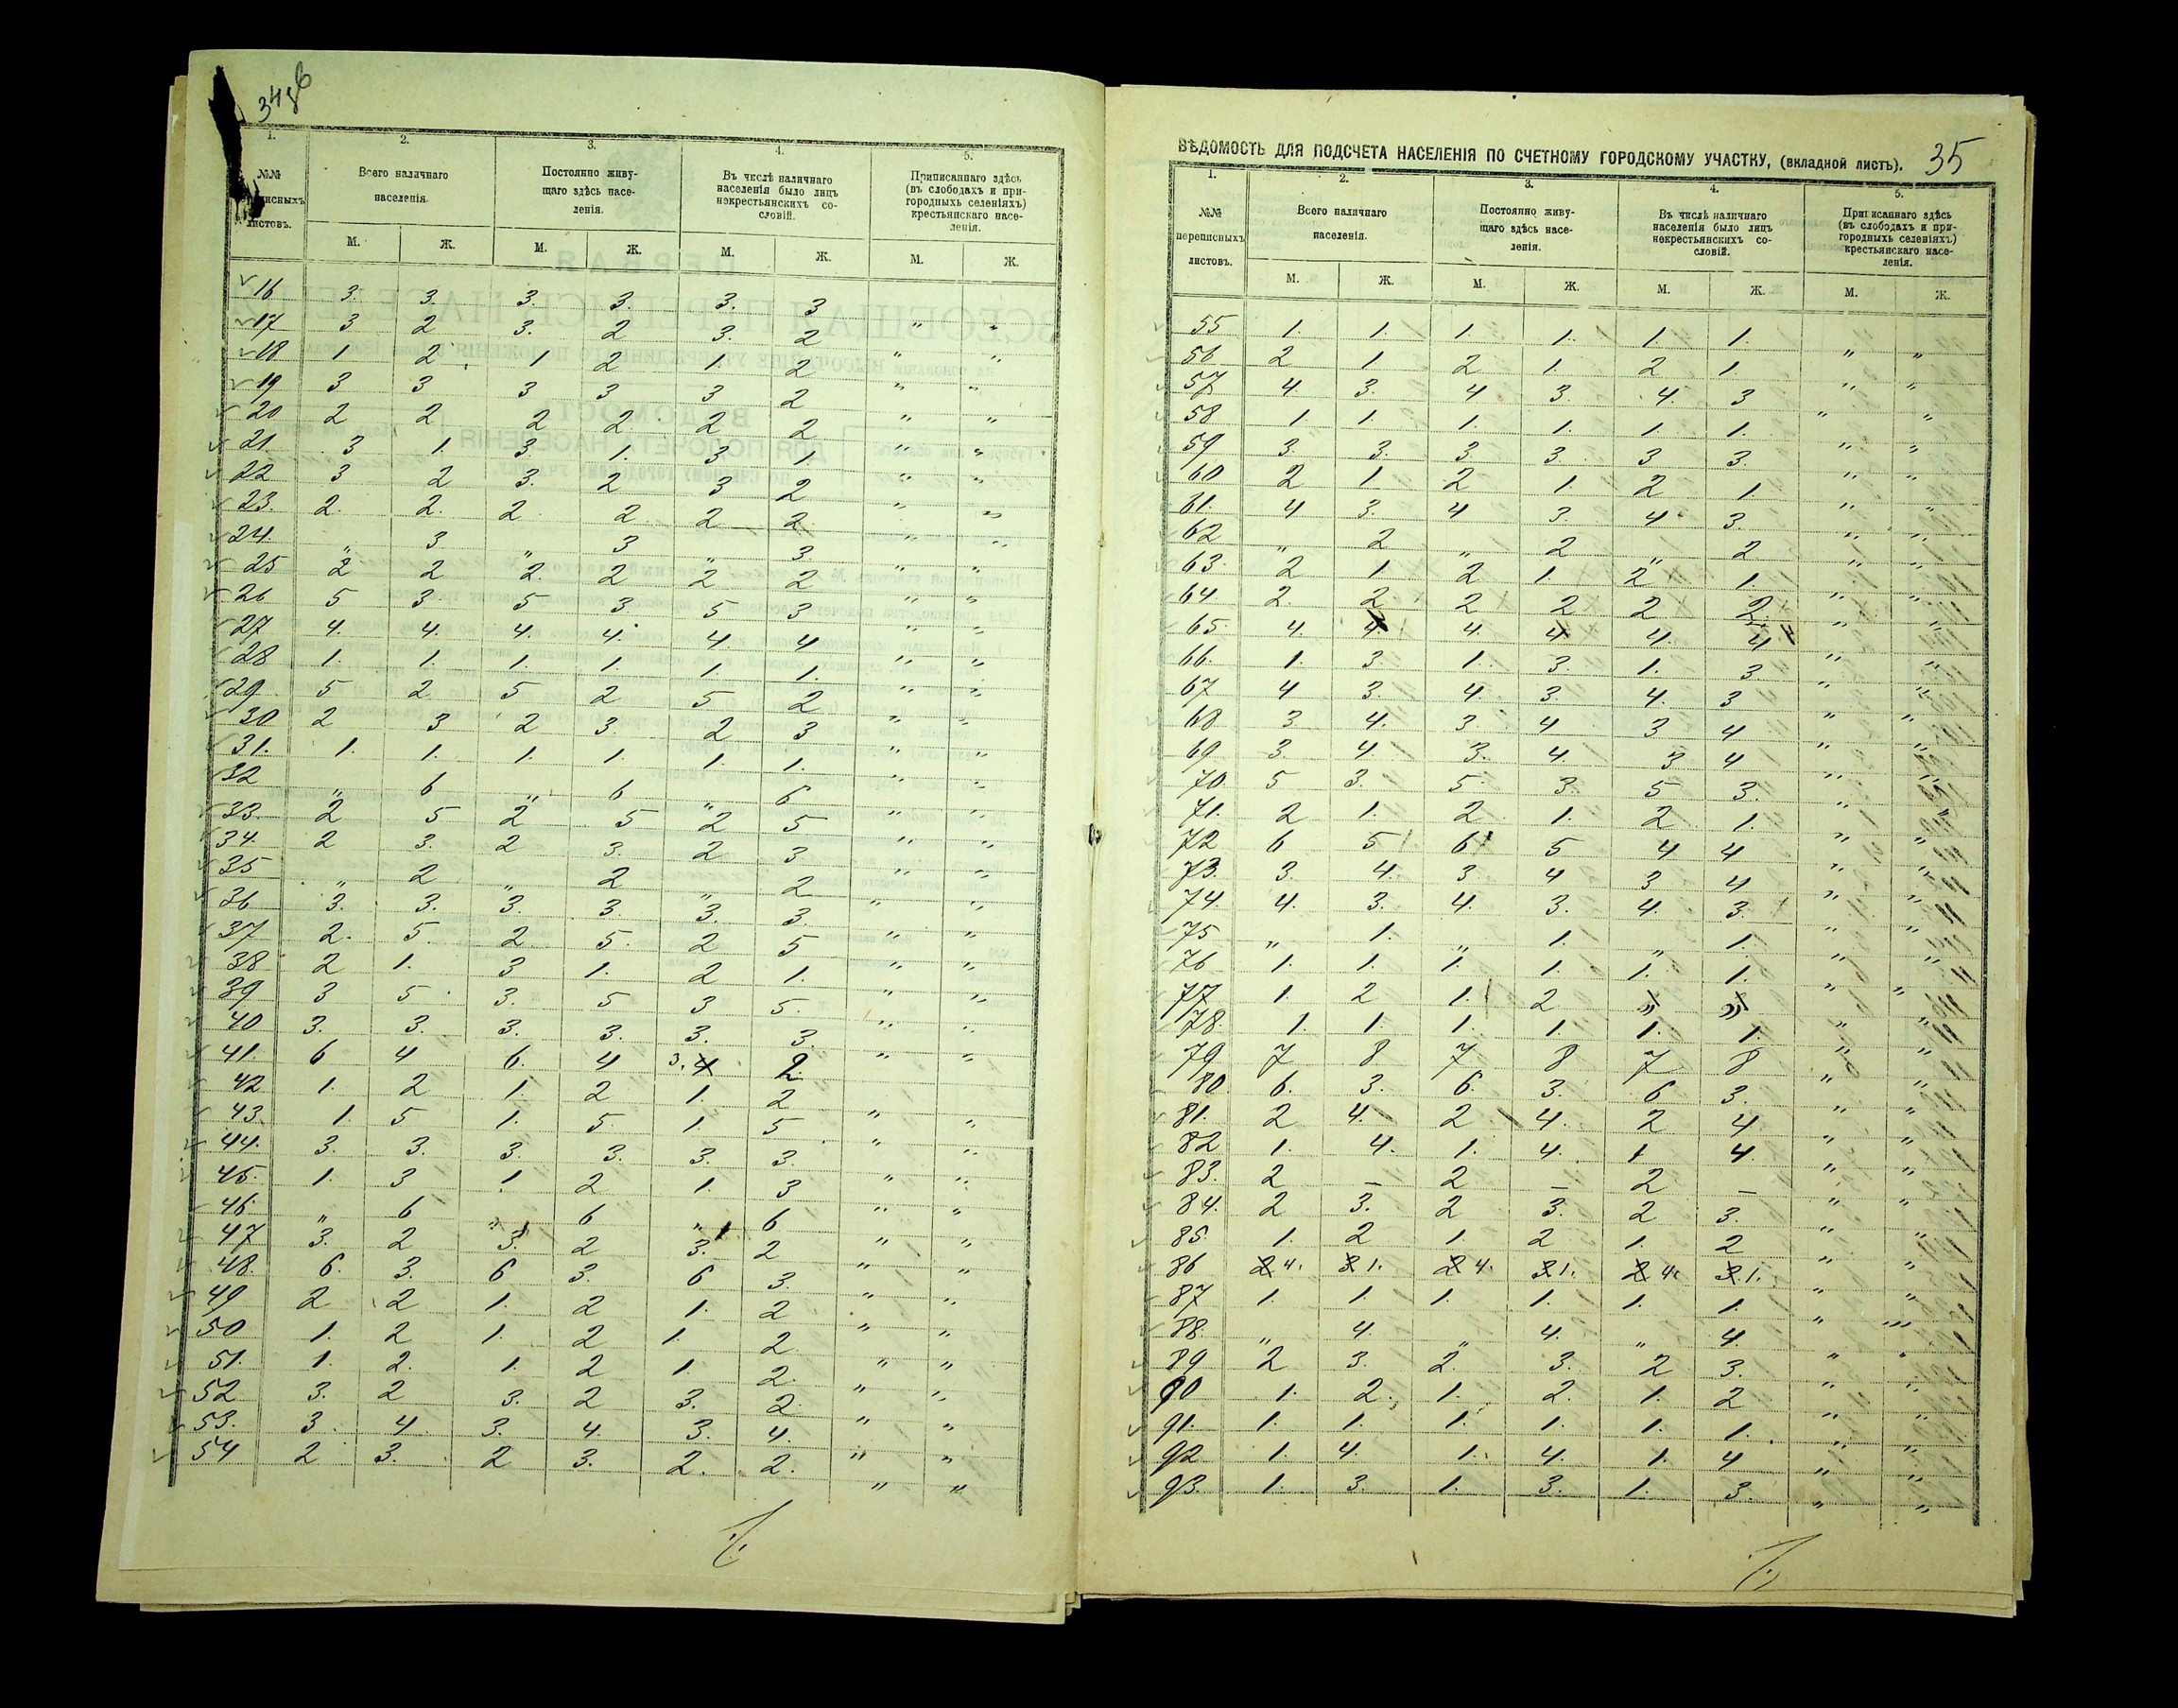 34об
1. 2. 3. 4. 5.
№№ ...исныхъ листовъ. Всего наличнаго населенія. Постоянно живущаго здѣсь населенія. Въ числѣ наличнаго населенія было лицъ некрестьянскихъ сословій. Приписаннаго здѣсь (въ слободахъ и пригородныхъ селеніяхъ) крестьянскаго населенія.
М. Ж. М. Ж. М. Ж. М. Ж.
16 3. 3. 3. 3. 3. 3 " "
17 3 2 3. 2 3. 2 " "
18 1 2 1 2 1. 2 " "
19 3 3 3 3 3 2 " "
20 2 2 2 2. 2 2 " "
21. 3 1. 3 1. 3 1. " "
22 3 2 3. 2 3 2 " "
23. 2. 2. 2 2 2 2 " "
24. " 3 " 3 " 3 " "
25 2 2 2. 2 2 2 " "
26 5 3. 5 3. 5 3 " "
27 4. 4. 4. 4. 4. 4 " "
28 1. 1. 1. 1. 1. 1. " "
29. 5 2 5 2 5 2 " "
30 2 3 2 3. 2 3 " "
31. 1. 1. 1. 1. 1. 1. " "
32 " 6 " 6 " 6 " "
33. 2 5 2 5 2 5 " "
34. 2 3. 2 3. 2 3 " "
35 " 2 " 2 " 2 " "
36 3. 3. 3. 3. 3. 3. " "
37 2. 5. 2. 5. 2 5 " "
38 2 1. 3 1. 2 1. " "
39 3 5 3. 5 3 5. " "
40 3. 3. 3. 3. 3. 3. " "
41. 6 4 6. 4 3. 4 2.
42 1. 2 1. 2 1. 2 " "
43. 1. 5 1. 5. 1. 5 " "
44. 3. 3. 3. 3. 3. 3. " "
45. 1. 3 1. 2 1. 3 " "
46. " 6 " 6 " 6 " "
47 3. 2 3. 2 3. 2 " "
48. 6. 3. 6 3. 6 3. " "
49 2 2 1. 2 1. 2 " "
50 1. 2 1. 2 1. 2. " "
51. 1. 2. 1. 2 1. 2. " "
52 3. 2 3. 2 3. 2. " "
53. 3. 4. 3. 4. 3. 4. " "
54 2 3. 2 3. 2. 2. " "
ВѢДОМОСТЬ ДЛЯ ПОДСЧЕТА НАСЕЛЕНІЯ ПО СЧЕТНОМУ ГОРОДСКОМУ УЧАСТКУ, (вкладной листъ). 35
1. 2. 3. 4. 5.
№№ переписныхъ листовъ. Всего наличнаго населенія. Постоянно живущаго здѣсь населенія. Въ числѣ наличнаго населенія было лицъ некрестьянскихъ сословій. Приписаннаго здѣсь (въ слободахъ и пригородныхъ селеніяхъ) крестьянскаго населенія.
М. Ж. М. Ж. М. Ж. М. Ж.
55 1. 1. 1. 1. 1. 1. " "
56 2 1 2 1. 2 1. " "
57 4 3. 4 3. 4. 3 " "
58 1. 1. 1. 1. 1. 1. " "
59 3. 3. 3. 3. 3 3. " "
60 2 1 2 1. 2 1. " "
61. 4 3. 4 3. 4 3. " "
62 " 2 " 2 " 2 " "
63. 2 1. 2 1. 2 1. " "
64. 2. 2 2 2 2 2. " "
65. 4. 4. 4. 4 4. 4 4 " "
66. 1. 3 1. 3. 1. 3 " "
67 4 3. 4. 3. 4. 3 " "
68 3 4. 3. 4 3 4 " "
69. 3. 4. 3. 4. 3 4 " "
70. 5 3. 5. 3. 5 3. " "
71. 2 1. 2. 1. 2. 1. " "
72 6 5 6 5 4 4 " "
73. 3. 4. 3 4 3 4 " "
74. 4. 3. 4. 3. 4. 3. " "
75 " 1. " 1. " 1. " "
76 1. 1. 1. 1. 1. 1. " "
77 1. 2 1. 2 " " " "
78. 1. 1. 1. 1. 1. 1. " "
79. 7 8 7 8 7 8 " "
80 6. 3. 6. 3. 6 3. " "
81. 2 4. 2 4. 2 4 " "
82 1. 4. 1. 4. 1 4. " "
83. 2 – 2 – 2 – " "
84. 2 3. 2 3. 2 3. " "
85. 1. 2 1. 2 1. 2 " "
86 2 4. 3 1. 2 4. 3 1. 2 4. 3 1. " "
87 1. 1. 1. 1. 1. 1. " "
88. " 4. " 4. " 4. " "
89 2 3. 2. 3. 2 3. " "
90 1. 2. 1. 2. 1. 2 " "
91. 1. 1. 1. 1. 1. 1. " "
92 1. 4. 1. 4. 1. 4 " "
93. 1. 3. 1. 3. 1. 3. " "